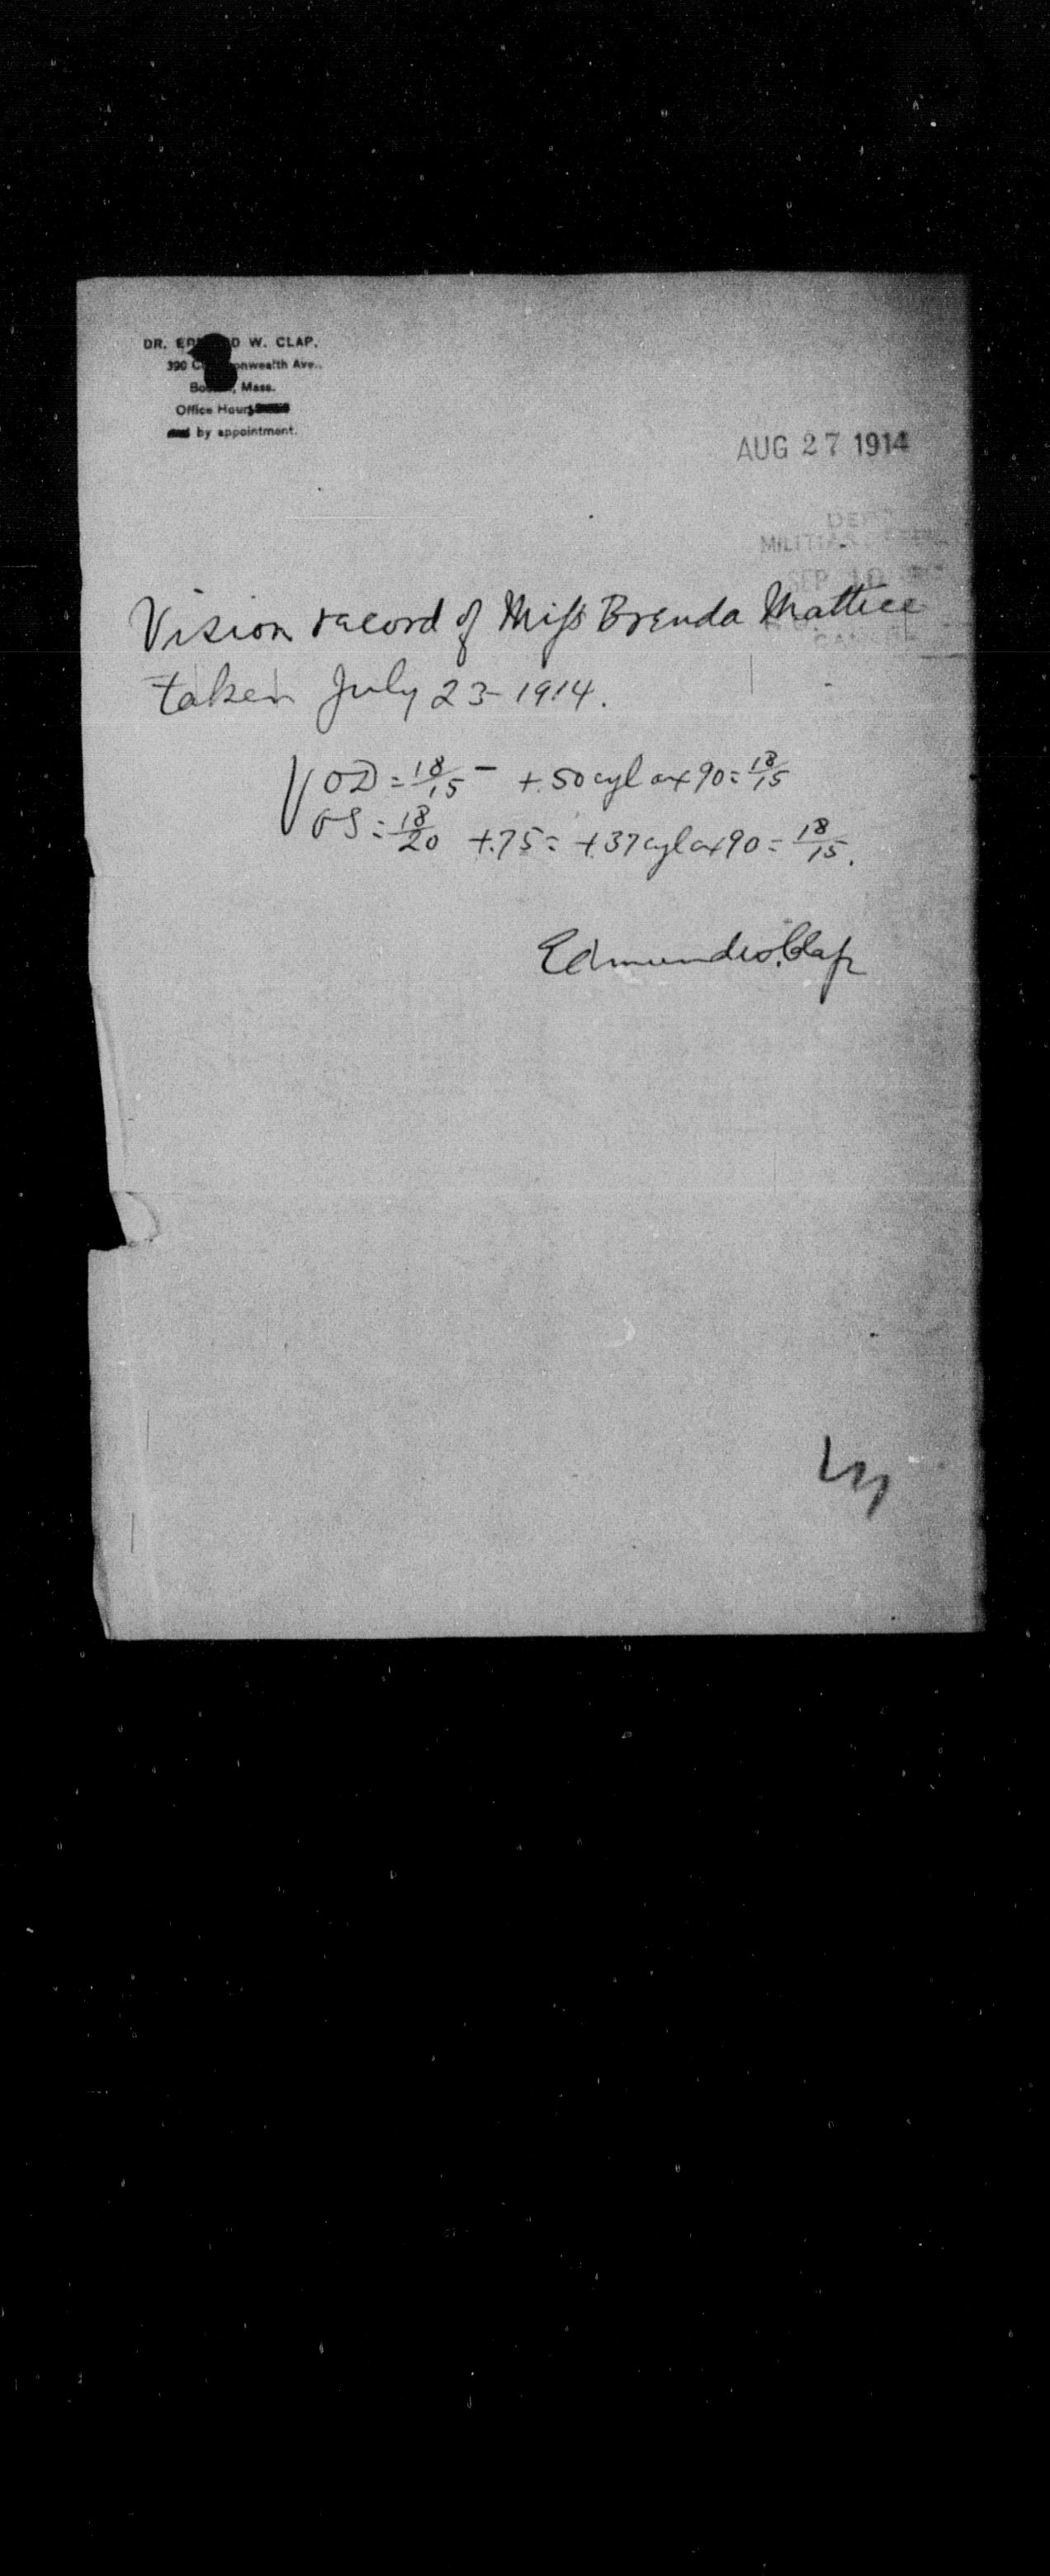 DR. ED D W. CLAP.
390 C onwealth Ave.
Bo , Mass.
Office Hours
by appointment.
AUG 27 1914
DEPT
MILITIA
SEP 10
Vision record of Miss Brenda Mattice
taken July 23-1914.
V OD = 18/15 - +.50 cyl ax 90 = 18/15
OS = 18/20 +.75 = +.37 cyl ax 90 = 18/15.
Edmund W. Clap